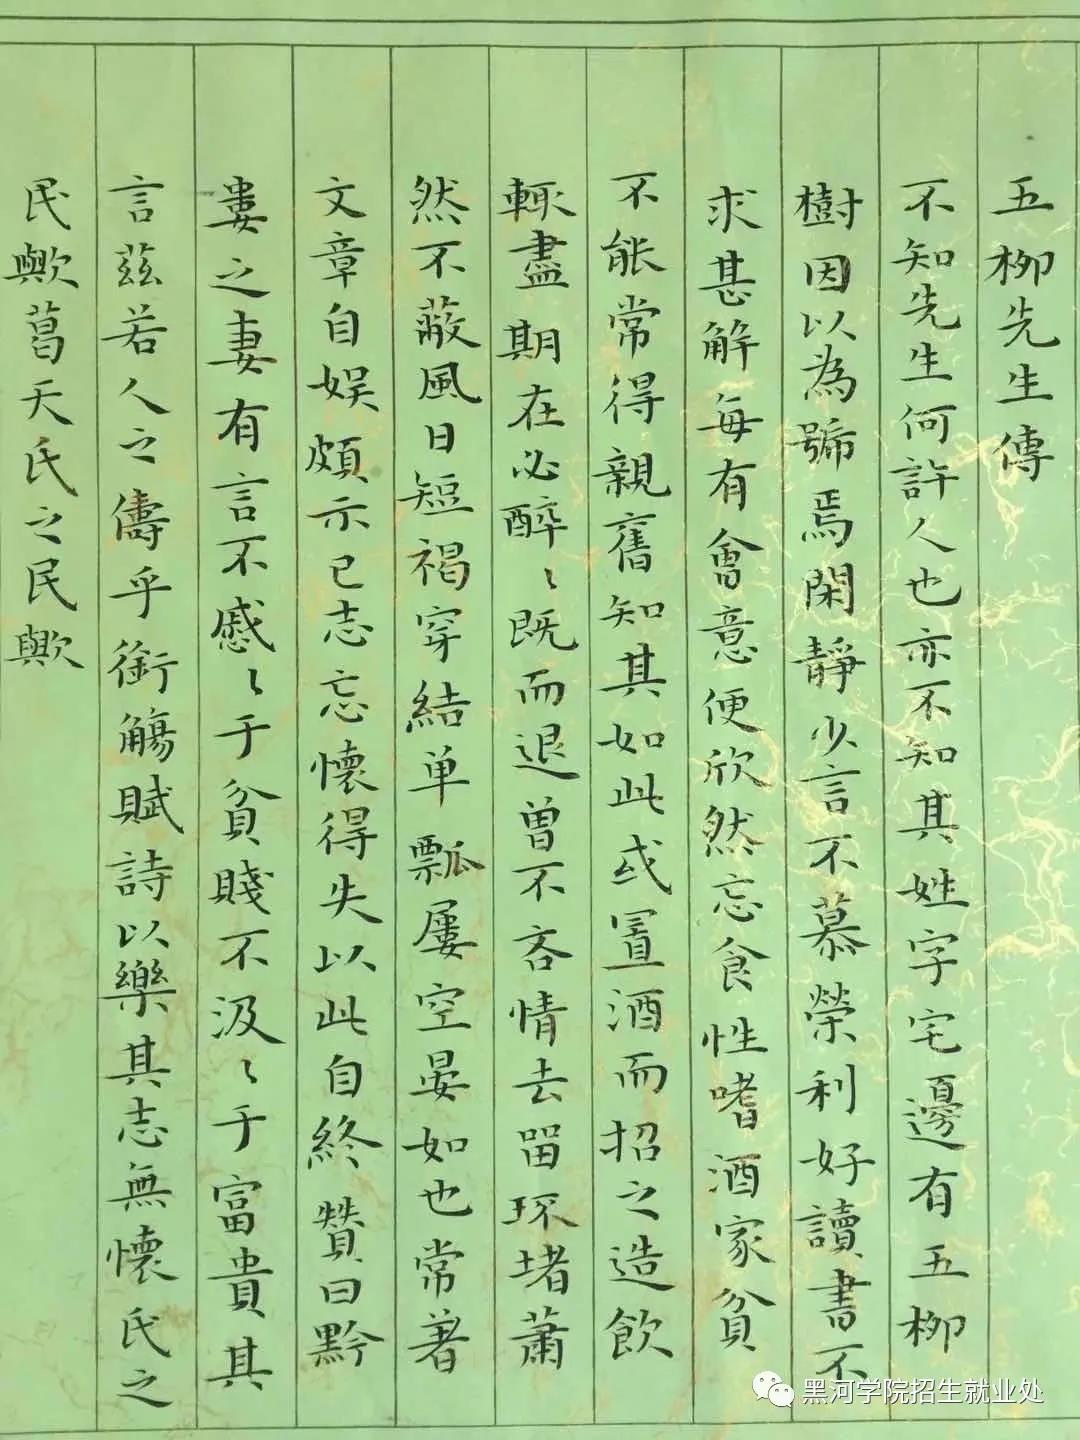 五柳先生傳
不知先生何許人也亦不知其姓字宅邊有五柳
樹因以為號焉閑靜少言不慕榮利好讀書不
求甚解每有會意便欣然忘食性嗜酒家貧
不能常得親舊知其如此或置酒而招之造飲
輒盡期在必醉〻既而退曾不吝情去留环堵蕭
然不蔽風日短褐穿結单瓢屢空晏如也常著
文章自娱頗示己志忘懷得失以此自終贊曰黔
婁之妻有言不慼〻于貧賤不汲〻于富貴其
言茲若人之儔乎銜觴賦詩以樂其志無懷氏之
民歟葛天氏之民歟
黑河学院招生就业处